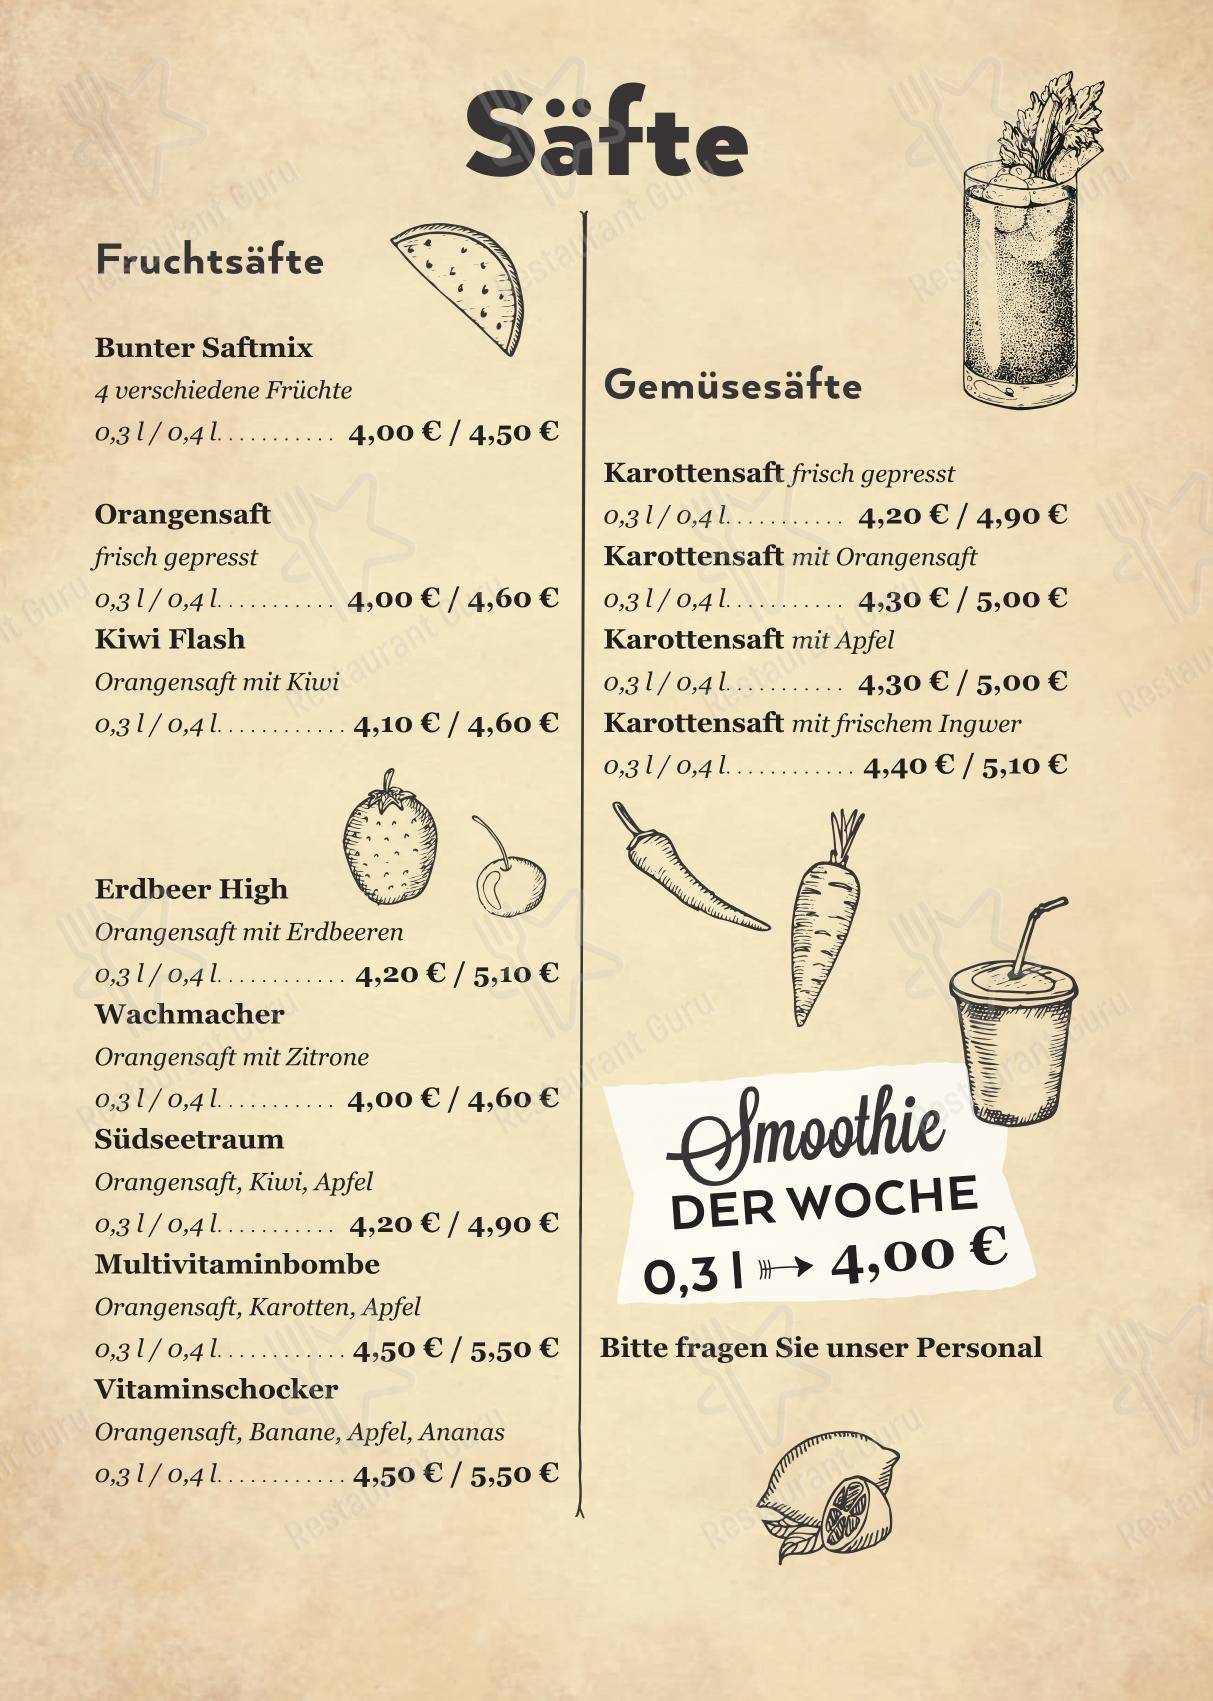 Säfte
Fruchtsäfte
Bunter Saftmix
4 verschiedene Früchte
0,3 l / 0,4 l. . . . . . . . . . . 4,00 € / 4,50 €
Orangensaft
frisch gepresst
0,3 l / 0,4 l. . . . . . . . . . . 4,00 € / 4,60 €
Kiwi Flash
Orangensaft mit Kiwi
0,3 l / 0,4 l. . . . . . . . . . . . 4,10 € / 4,60 €
Erdbeer High
Orangensaft mit Erdbeeren
0,3 l / 0,4 l. . . . . . . . . . . . 4,20 € / 5,10 €
Wachmacher
Orangensaft mit Zitrone
0,3 l / 0,4 l. . . . . . . . . . . 4,00 € / 4,60 €
Südseetraum
Orangensaft, Kiwi, Apfel
0,3 l / 0,4 l. . . . . . . . . . . 4,20 € / 4,90 €
Multivitaminbombe
Orangensaft, Karotten, Apfel
0,3 l / 0,4 l. . . . . . . . . . . . 4,50 € / 5,50 €
Vitaminschocker
Orangensaft, Banane, Apfel, Ananas
0,3 l / 0,4 l. . . . . . . . . . . . 4,50 € / 5,50 €
Gemüsesäfte
Karottensaft frisch gepresst
0,3 l / 0,4 l. . . . . . . . . . . 4,20 € / 4,90 €
Karottensaft mit Orangensaft
0,3 l / 0,4 l. . . . . . . . . . . 4,30 € / 5,00 €
Karottensaft mit Apfel
0,3 l / 0,4 l. . . . . . . . . . . 4,30 € / 5,00 €
Karottensaft mit frischem Ingwer
0,3 l / 0,4 l. . . . . . . . . . . . 4,40 € / 5,10 €
Smoothie
DER WOCHE
0,3 l → 4,00 €
Bitte fragen Sie unser Personal
Restaurant Guru